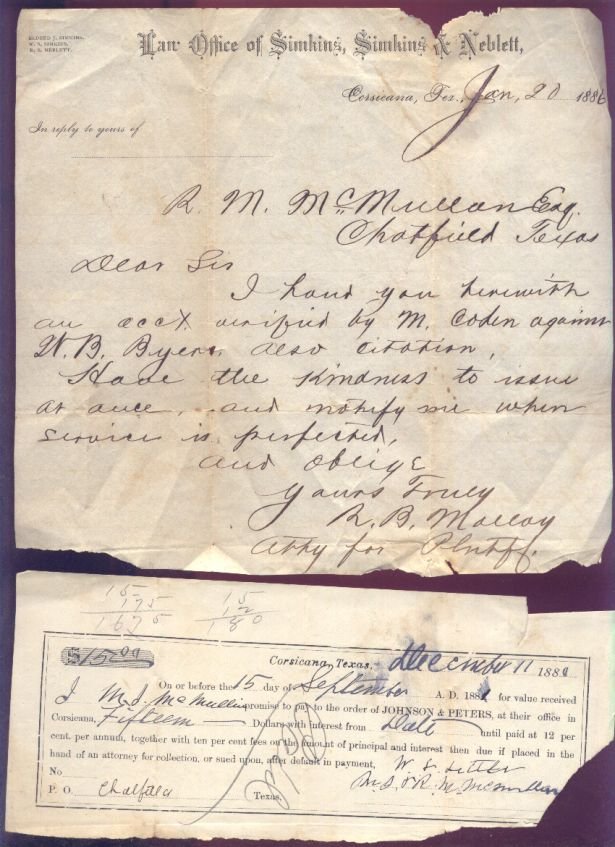 ELDRED J. SIMKINS.
W. S. SIMKINS.
R. S. NEBLETT.
Law Office of Simkins, Simkins & Neblett,
Corsicana, Tex., Jan, 20 1886
In reply to yours of
R. M. McMullan Esq.
Chatfield Texas
Dear Sir
I hand you herewith
an acct verified by M. Coden against
W. B. Byers, also citation,
Have the kindness to issue
at once, and notify me when
service is perfected,
and oblige
yours Truly
R. B. Malloy
Atty for Plntff.
15 15
175 12
1675 180
$15.00
Corsicana, Texas. December 11 188
On or before the 15 day of September A. D. 188 for value received
I M. J. McMullin promise to pay to the order of JOHNSON & PETERS, at their office in
Corsicana, Fifteen Dollars with interest from Date until paid at 12 per
cent. per annum, together with ten per cent fees on the amount of principal and interest then due if placed in the
hand of an attorney for collection, or sued upon, after default in payment,
W. S.
No M. J. & R. M. McMullan
P. O. Chatfield Texas.